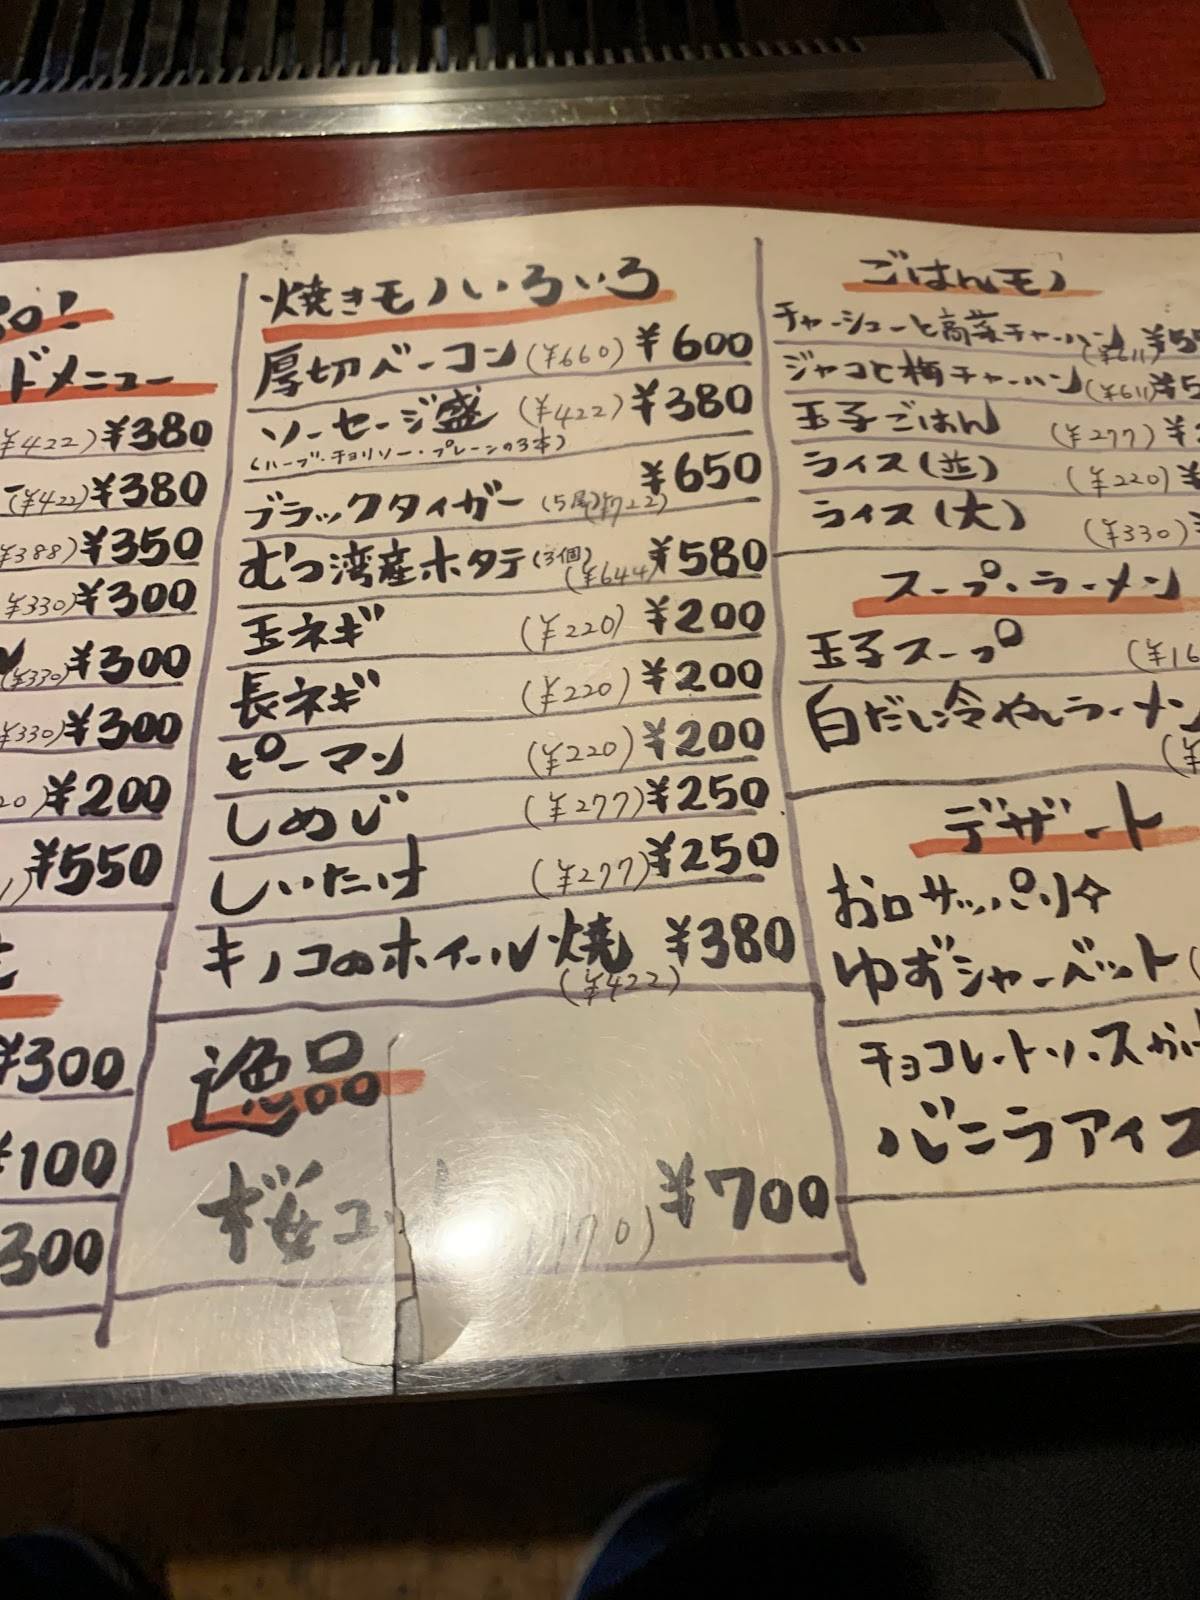 ドメニュー
(¥422)¥380
(¥422)¥380
¥388)¥350
¥330)¥300
(¥330)¥300
¥330)¥300
20)¥200
)¥550
¥300
¥100
300
焼きモノいろいろ
厚切ベーコン(¥660)¥600
ソーセージ盛(¥422)¥380
(ハーブ・チョリソー・プレーンの3本)
ブラックタイガー(5尾)(¥722)¥650
むつ湾産ホタテ(3個)(¥644)¥580
玉ネギ(¥220)¥200
長ネギ(¥220)¥200
ピーマン(¥220)¥200
しめじ(¥277)¥250
しいたけ(¥277)¥250
キノコのホイール焼 ¥380
(¥422)
逸品
桜ユ ¥700
770)
ごはんモノ
チャーシューと高菜チャーハン(¥611)¥5
ジャコと梅チャーハン(¥611)¥5
玉子ごはん(¥277)¥
ライス(並)(¥220)¥
ライス(大)(¥330)
スープ・ラーメン
玉子スープ(¥16
白だし冷やしラーメン
(¥
デザート
お口サッパリ☆
ゆずシャーベット(
チョコレートソースがけ
バニラアイス